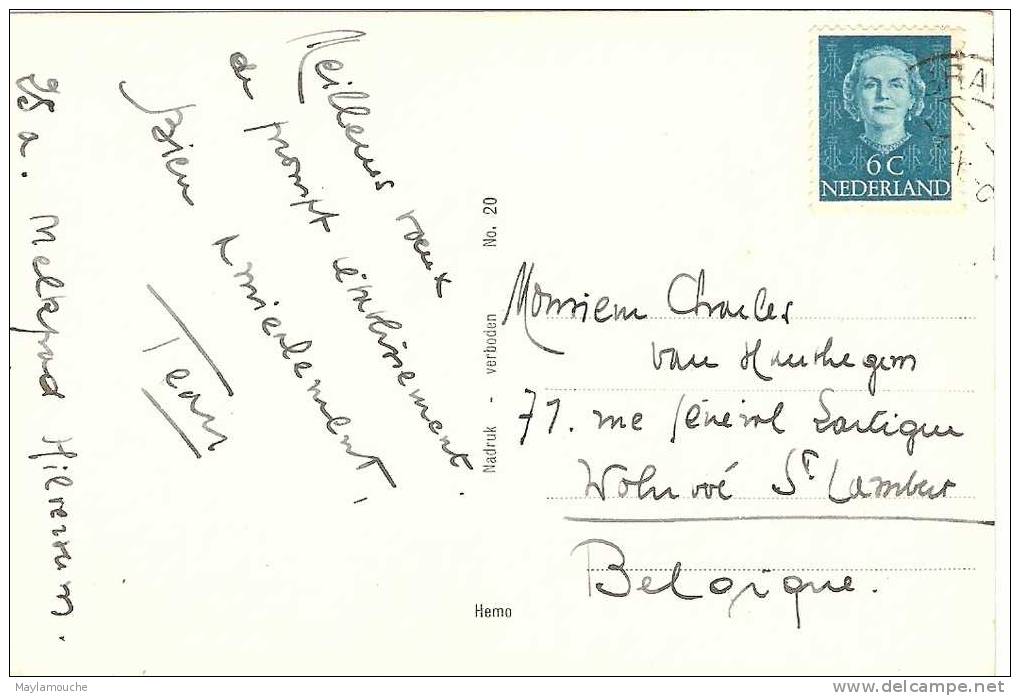 Meilleurs vœux
de prompt
Bien amicalement,
Jean
75 a. Melkpad Hilversum.
Nadruk - verboden No. 20
Hemo
6 C
NEDERLAND
Monsieur Charles
van
71. rue Général Lartigue
Woluwé St Lambert
Belgique.
Maylamouche
www.delcampe.net